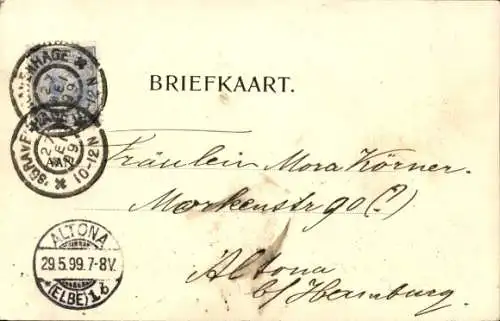 'SGRAVENHAGE
10-12 N
27
MEI
99
'SGRAVENHAGE
10-12 N
27
MEI
99
AAN
BRIEFKAART.
Fräulein Mora Körner.
Markenstr 90 (?)
Altona
b/ Hamburg.
ALTONA
29.5.99.7-8V.
*(ELBE)1b